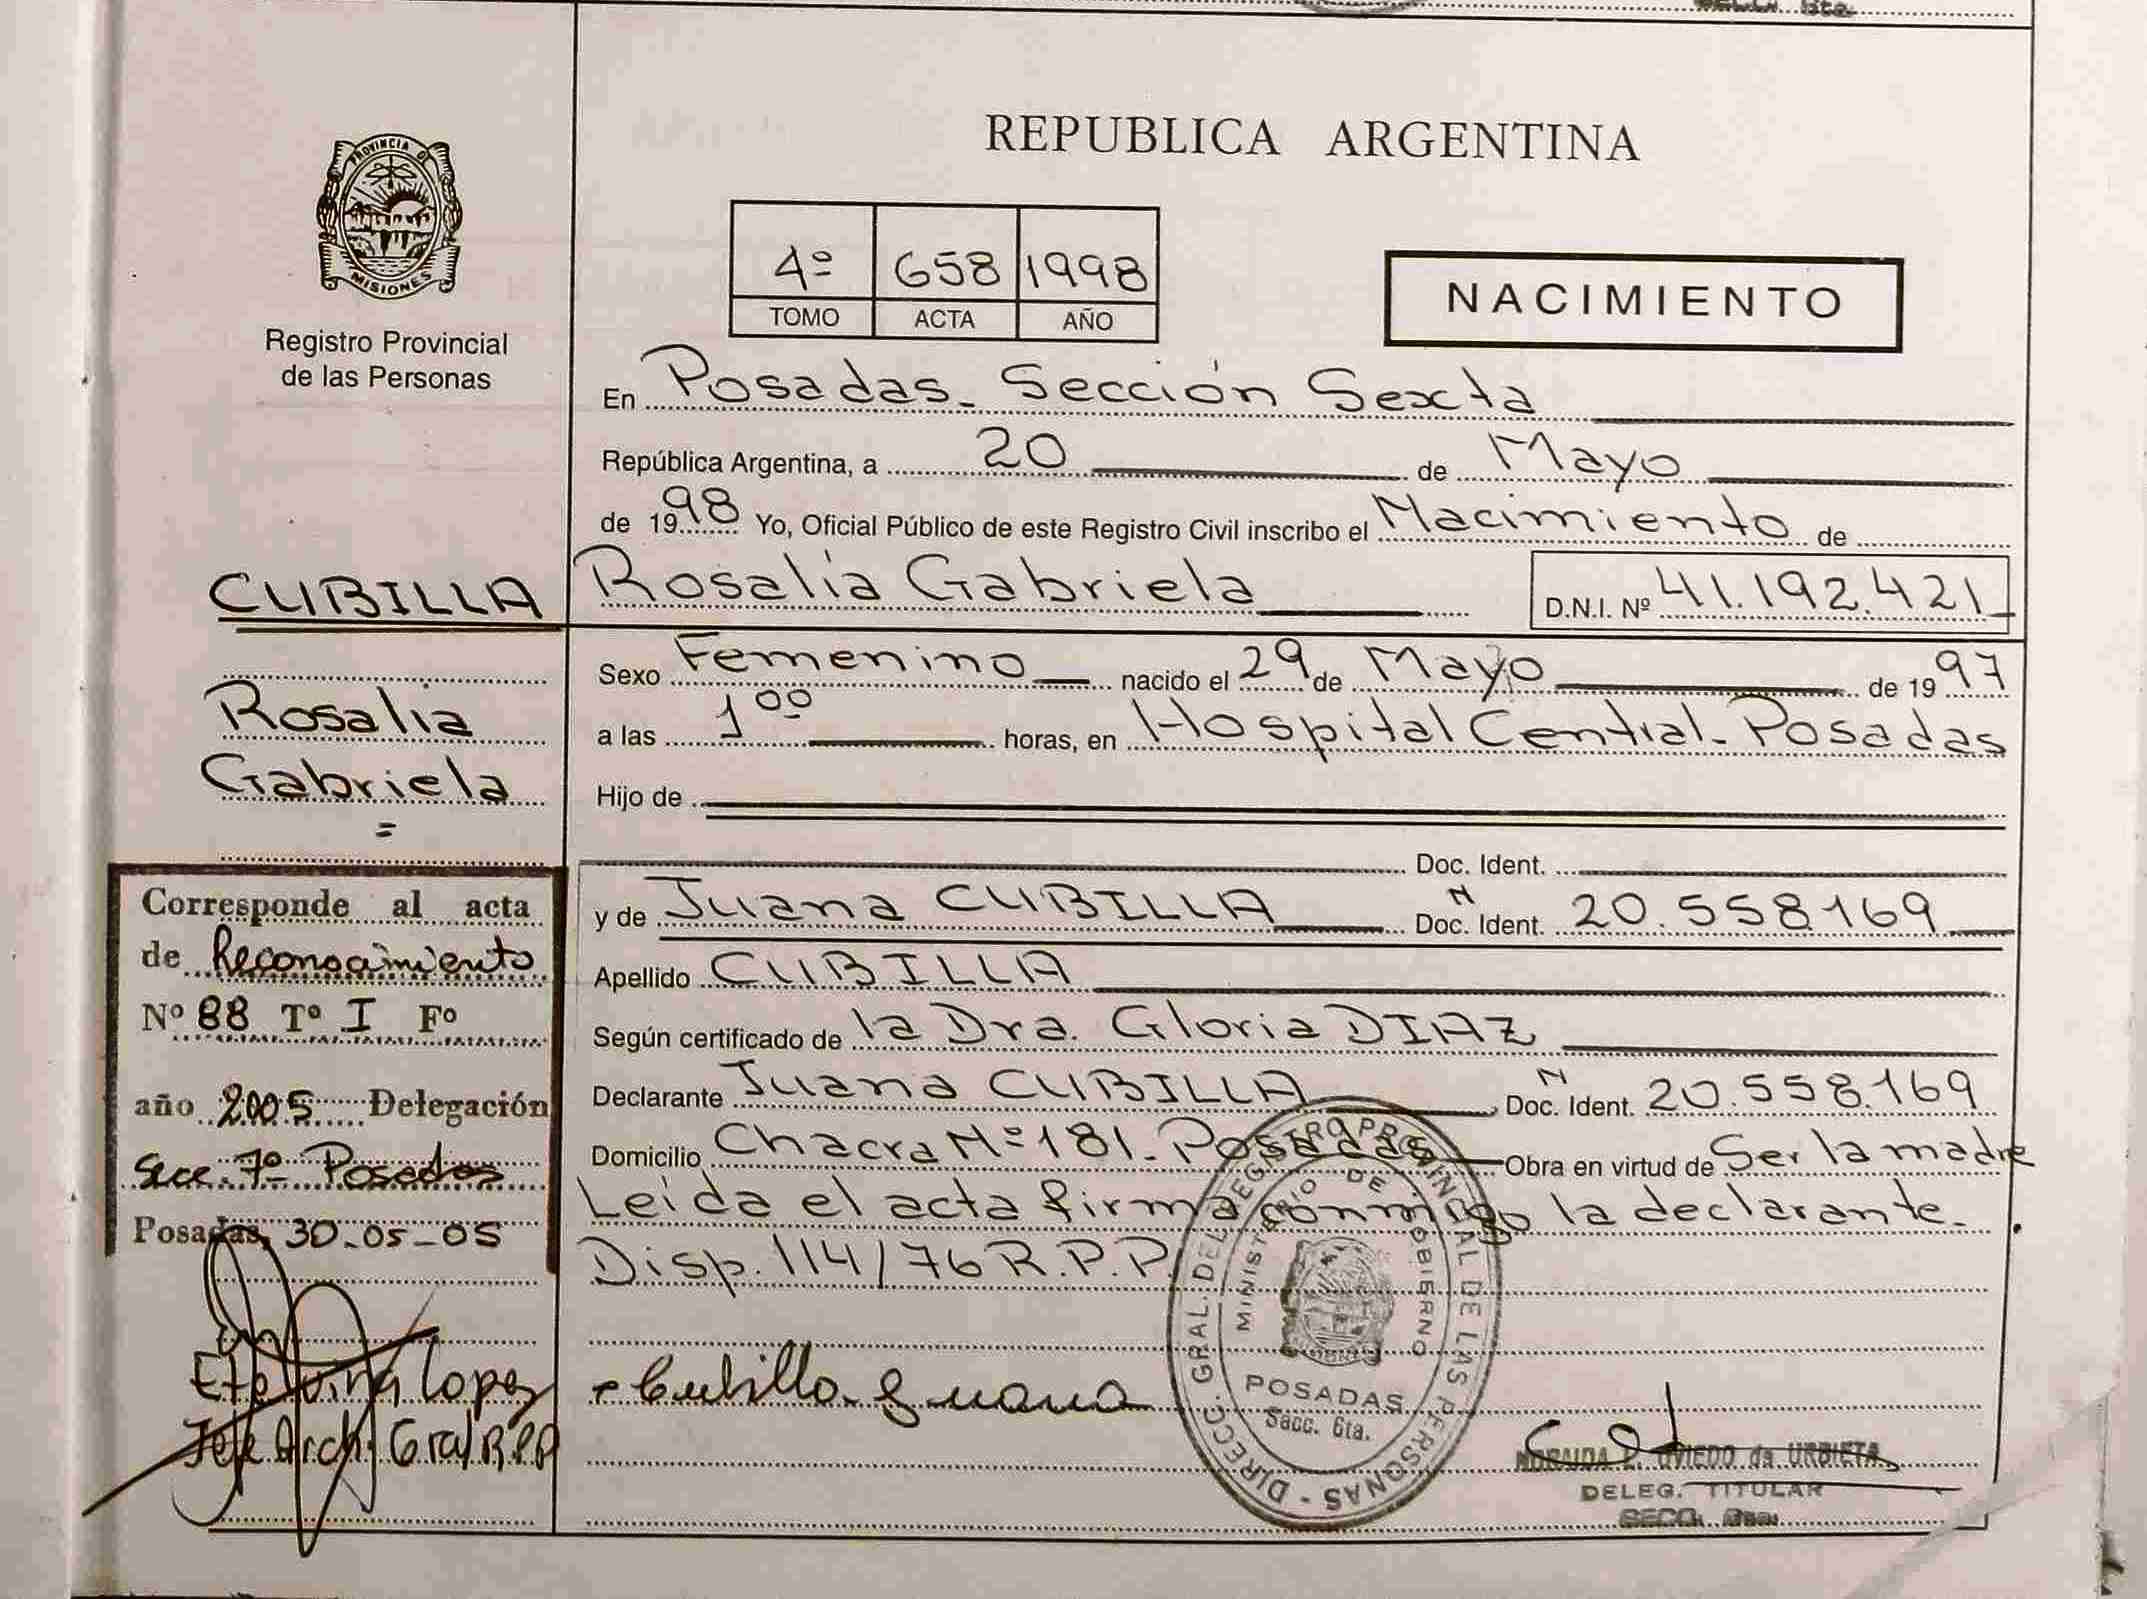 REPUBLICA ARGENTINA
PROVINCIA DE
MISIONES
Registro Provincial
de las Personas
4º 658 1998
TOMO ACTA AÑO
NACIMIENTO
En Posadas - Sección Sexta
República Argentina, a 20 de Mayo
de 1998 Yo, Oficial Público de este Registro Civil inscribo el Nacimiento de
CUBILLA Rosalia Gabriela D.N.I. Nº 41.192.421
Rosalia
Gabriela
=
Sexo Femenino nacido el 29 de Mayo de 1997
a las 1 00 horas, en Hospital Central - Posadas
Hijo de
Doc. Ident.
y de Juana CUBILLA N Doc. Ident. 20.558.169
Apellido CUBILLA
Según certificado de la Dra. Gloria DIAZ
Declarante Juana CUBILLA N Doc. Ident. 20.558.169
Domicilio Chacra Nº 181 - Posadas Obra en virtud de Ser la madre
Leída el acta firma conmigo la declarante.
Disp. 114/76 R.P.P.
Corresponde al acta
de Reconocimiento
Nº 88 Tº I Fº
año 2005 Delegación
Secc. 7º Posadas
Posadas, 30-05-05
Etelvina Lopez
Jefe Arch. Gral R.P.P
Cubilla Juana
DIRECC. GRAL. DEL REGISTRO PROVINCIAL DE LAS PERSONAS
MINISTERIO DE GOBIERNO
POSADAS
Sacc. 6ta.
OVIEDO de URBIETA
DELEG. TITULAR
SECC. 6ta.